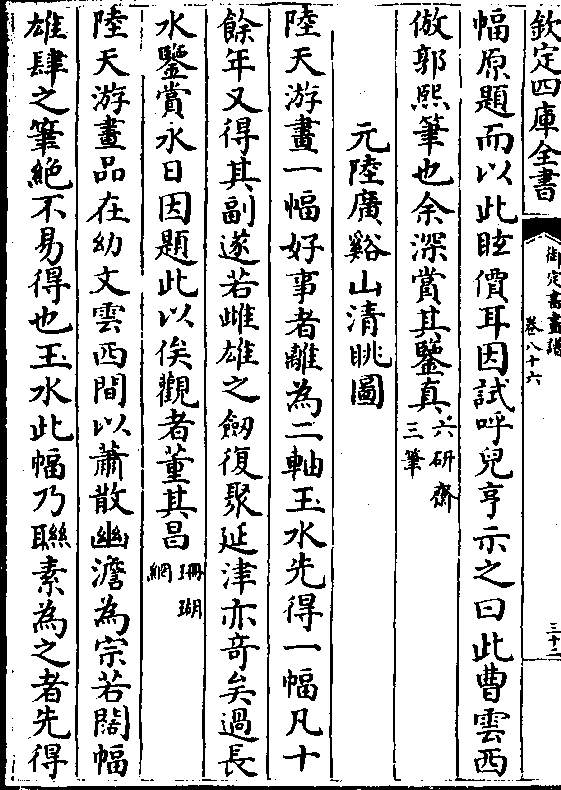 欽定四庫全書
御定書畫譜
卷八十六
三十二
幅原題而以此眩價耳因試呼兒亨示之曰此曹雲西
倣郭熙筆也余深賞其鑒真
六研齋
三筆
元陸廣谿山清眺圖
陸天游畫一幅好事者離為二軸玉水先得一幅凡十
餘年又得其副遂若雌雄之劒復聚延津亦竒矣過長
水鑒賞水日因題此以俟觀者董其昌
珊瑚
網
陸天游畫品在幼文雲西間以蕭散幽澹為宗若闊幅
雄肆之筆絶不易得也玉水此幅乃聯素為之者先得